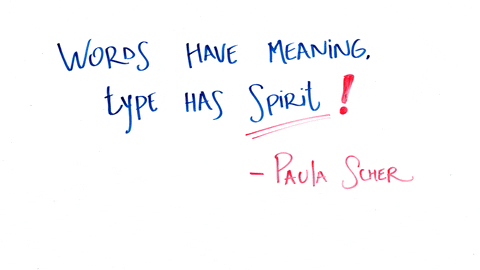 WORDS HAVE MEANING.
type HAS Spirit!
- PAULA SCHER